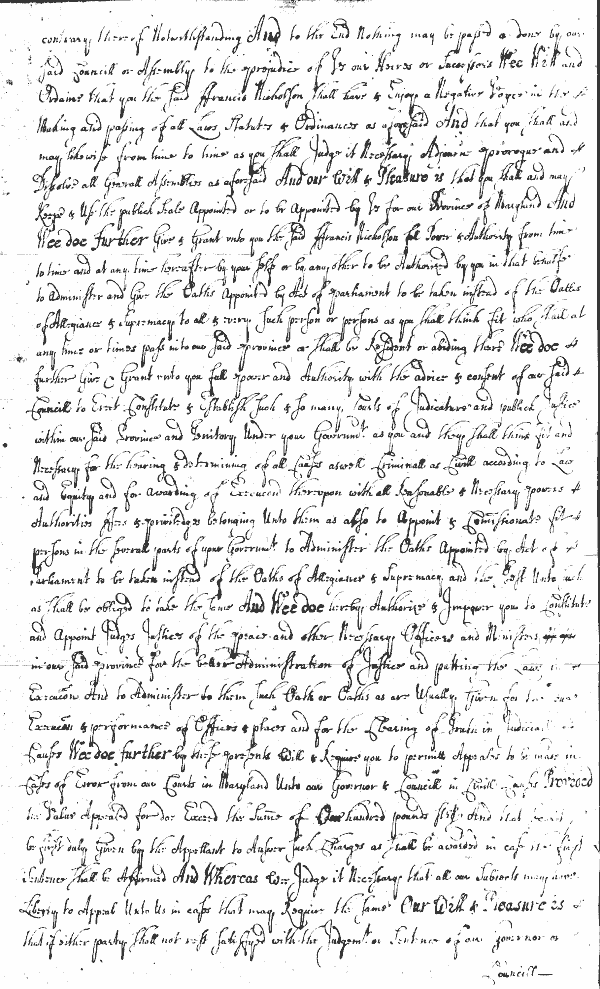 contrary thereof Notwithstanding And to the End Nothing may be passed or done by our
said Councill or Assembly to the prejudice of Us our Heires or Successors Wee Will and
Ordaine that you the said ffrancis Nicholson shall have & Enjoy a Negative Voyce in the
Making and passing of all Laws Statutes & Ordinances as aforesaid And that you shall and
may likewise from time to time as you shall Judge it Necessary Adjourn prorogue and
Dissolve all Generall Assemblies as aforesaid And our Will & Pleasure is that you shall and may
Keepe & Use the publick Seale Appointed or to be Appointed by Us for our Province of Maryland And
Wee doe further Give & Grant unto you the said ffrancis Nicholson full Power & Authority from time
to time and at any time hereafter by your selfe or by any other to be Authorized by you in that behalfe
to administer and Give the Oaths Appointed by Act of parliament to be taken instead of the Oaths
of Allegiance & Supremacy to all & every such person or persons as you shall think fit who shall at
any time or times pass into our said province or shall be Resident or abiding there Wee doe
further Give & Grant unto you full power and Authority with the advice & consent of our said
Councill to Erect Constitute & Establish such & so many Courts of Judicature and publick Justice
within our said Province and Territory Under your Governmt. as you and they shall think fit and
Necessary for the hearing & determining of all Causes aswell Criminall as Civill according to Law
and Equity and for awarding of Execucon thereupon with all Reasonable & Necessary powers
Authorities ffees & priviledges belonging Unto them as also to Appoint & Comissionate fit
persons in the severall parts of your Governmt. to Administer the Oaths Appointed by Act of
Parliament to be taken instead of the Oaths of Allegiance & Supremacy and the Test Unto such
as shall be obliged to take the same And Wee doe hereby Authorize & Impower you to Constitute
and Appoint Judges Justices of the peace and other Necessary Officers and Ministers
in our said province for the better Administration of Justice and putting the Laws in
Execucon And to Administer to them such Oath or Oaths as are Usually Given for the due
Execucon & performance of Offices & places and for the Clearing of Truth in Judiciall
Causes Wee doe further by these presents Will & Require you to permitt Appeales to be made in
Cases of Error from our Courts in Maryland Unto our Governor & Councill in Civill Causes Provided
the Value Appealed for doe Exceed the Summe of One hundred pounds sterl. And that
be first duly Given by the Appellant to Answer such Charges as shall be awarded in case the first
Sentence shall be Affirmed And Whereas Wee Judge it Necessary that all our Subjects may have
Liberty to Appeal Unto Us in cases that may Require the same Our Will & Pleasure is
that if either party shall not rest sattisfyed with the Judgemt. or Sentence of our Governor or
Councill